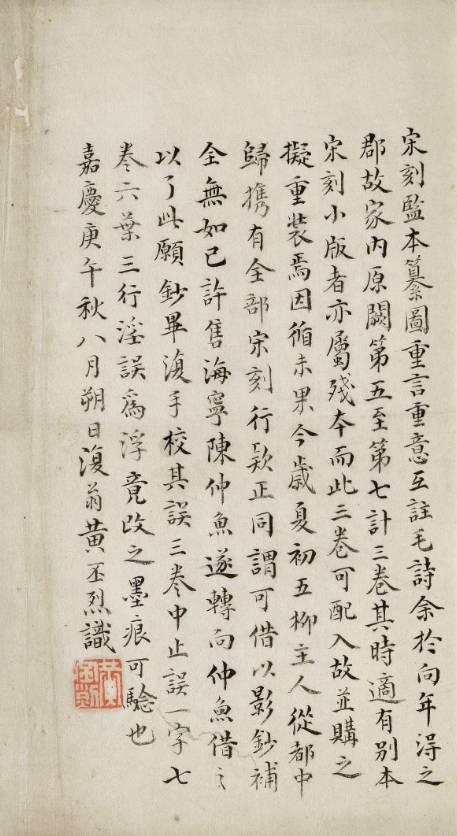 宋刻監本纂圖重言重意互註毛詩余於向年淂之
郡故家內原闕第五至第七計三卷其時適有别本
宋刻小版者亦屬殘本而此三卷可配入故並購之
擬重裝焉因循未果今歲夏初五柳主人從都中
歸携有全部宋刻行欵正同謂可借以影鈔補
全無如已許售海寧陳仲魚遂轉向仲魚借之
以了此願鈔畢復手校其誤三卷中止誤一字七
卷六葉三行淫誤爲浮竟改之墨痕可驗也
嘉慶庚午秋八月朔日復翁黄丕烈識
黄丕烈